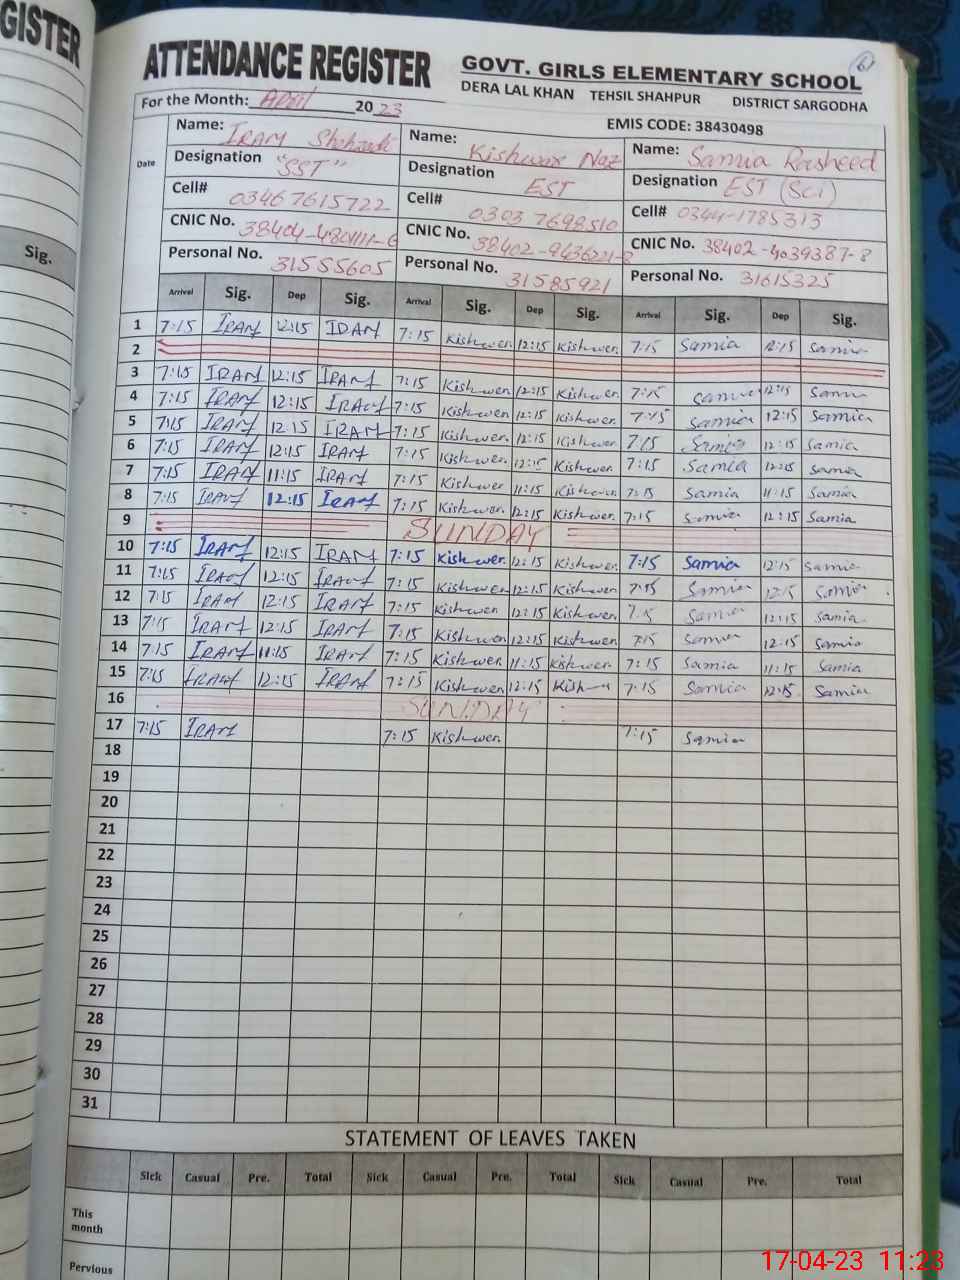 GISTER
Sig.
6
ATTENDANCE REGISTER
GOVT. GIRLS ELEMENTARY SCHOOL
DERA LAL KHAN TEHSIL SHAHPUR DISTRICT SARGODHA
For the Month: April 2023
EMIS CODE: 38430498
Date
Name: IRAM Name: Kishwar Naz Name: Samia Rasheed
Designation "SST" Designation EST Designation EST (Sci)
Cell# 03467615722 Cell# 0303 7698510 Cell# 0344-1785313
CNIC No. CNIC No. CNIC No. 38402-4039387-8
Personal No. 31555605 Personal No. 31585921 Personal No. 31615325
Arrival Sig. Dep Sig. Arrival Sig. Dep Sig. Arrival Sig. Dep Sig.
1 7:15 IRAM 12:15 IRAM 7:15 Kishwer 12:15 Kishwer 7:15 Samia 12:15 Samia
2
3 7:15 IRAM 12:15 IRAM 7:15 Kishwer 12:15 Kishwer 7:15 Samia 12:15 Samia
4 7:15 IRAM 12:15 IRAM 7:15 Kishwer 12:15 Kishwer 7:15 Samia 12:15 Samia
5 7:15 IRAM 12:15 IRAM 7:15 Kishwer 12:15 Kishwer 7:15 Samia 12:15 Samia
6 7:15 IRAM 12:15 IRAM 7:15 Kishwer 12:15 Kishwer 7:15 Samia 12:15 Samia
7 7:15 IRAM 11:15 IRAM 7:15 Kishwer 11:15 Kishwer 7:15 Samia 11:15 Samia
8 7:15 IRAM 12:15 IRAM 7:15 Kishwer 12:15 Kishwer 7:15 Samia 12:15 Samia
9 SUNDAY
10 7:15 IRAM 12:15 IRAM 7:15 Kishwer 12:15 Kishwer 7:15 Samia 12:15 Samia
11 7:15 IRAM 12:15 IRAM 7:15 Kishwer 12:15 Kishwer 7:15 Samia 12:15 Samia
12 7:15 IRAM 12:15 IRAM 7:15 Kishwer 12:15 Kishwer 7:15 Samia 12:15 Samia
13 7:15 IRAM 12:15 IRAM 7:15 Kishwer 12:15 Kishwer 7:15 Samia 12:15 Samia
14 7:15 IRAM 11:15 IRAM 7:15 Kishwer 11:15 Kishwer 7:15 Samia 11:15 Samia
15 7:15 IRAM 12:15 IRAM 7:15 Kishwer 12:15 Kishwer 7:15 Samia 12:15 Samia
16 SUNDAY
17 7:15 IRAM 7:15 Kishwer 7:15 Samia
18
19
20
21
22
23
24
25
26
27
28
29
30
31
STATEMENT OF LEAVES TAKEN
Sick Casual Pre. Total Sick Casual Pre. Total Sick Casual Pre. Total
This month
Pervious
17-04-23 11:23